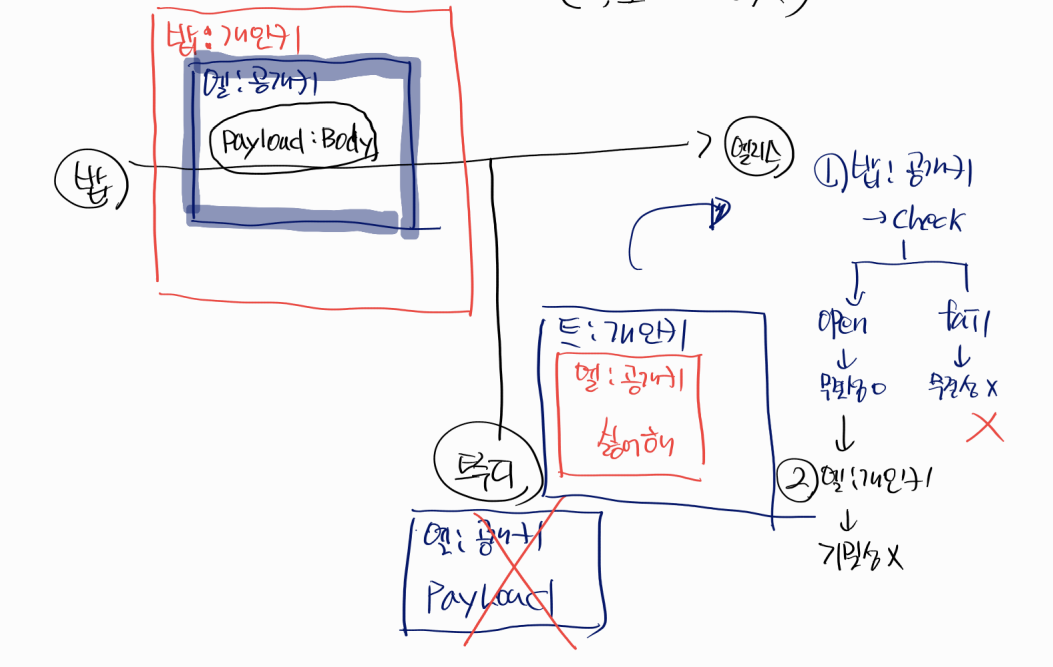 밥:개인키
엘:공개키
Payload:Body
밥
엘리스
①밥:공개키
→check
open
fail
무결성○
무결성X
②엘:개인키
기밀성X
트:개인키
엘:공개키
싫어해
트루디
엘:공개키
Payload